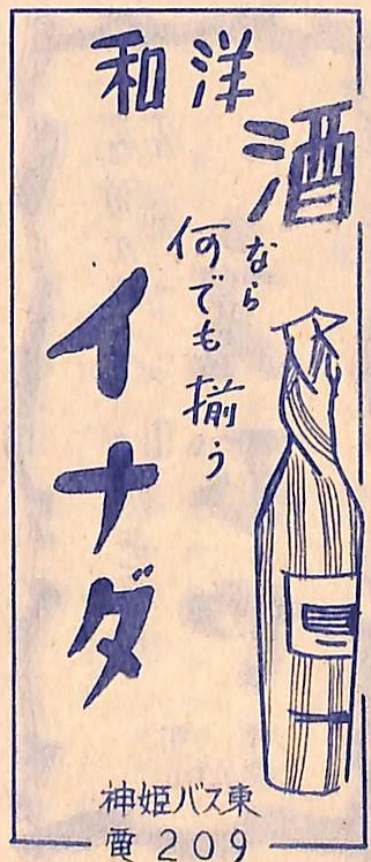 和洋
酒なら
何でも揃う
イナダ
神姫バス東
電209